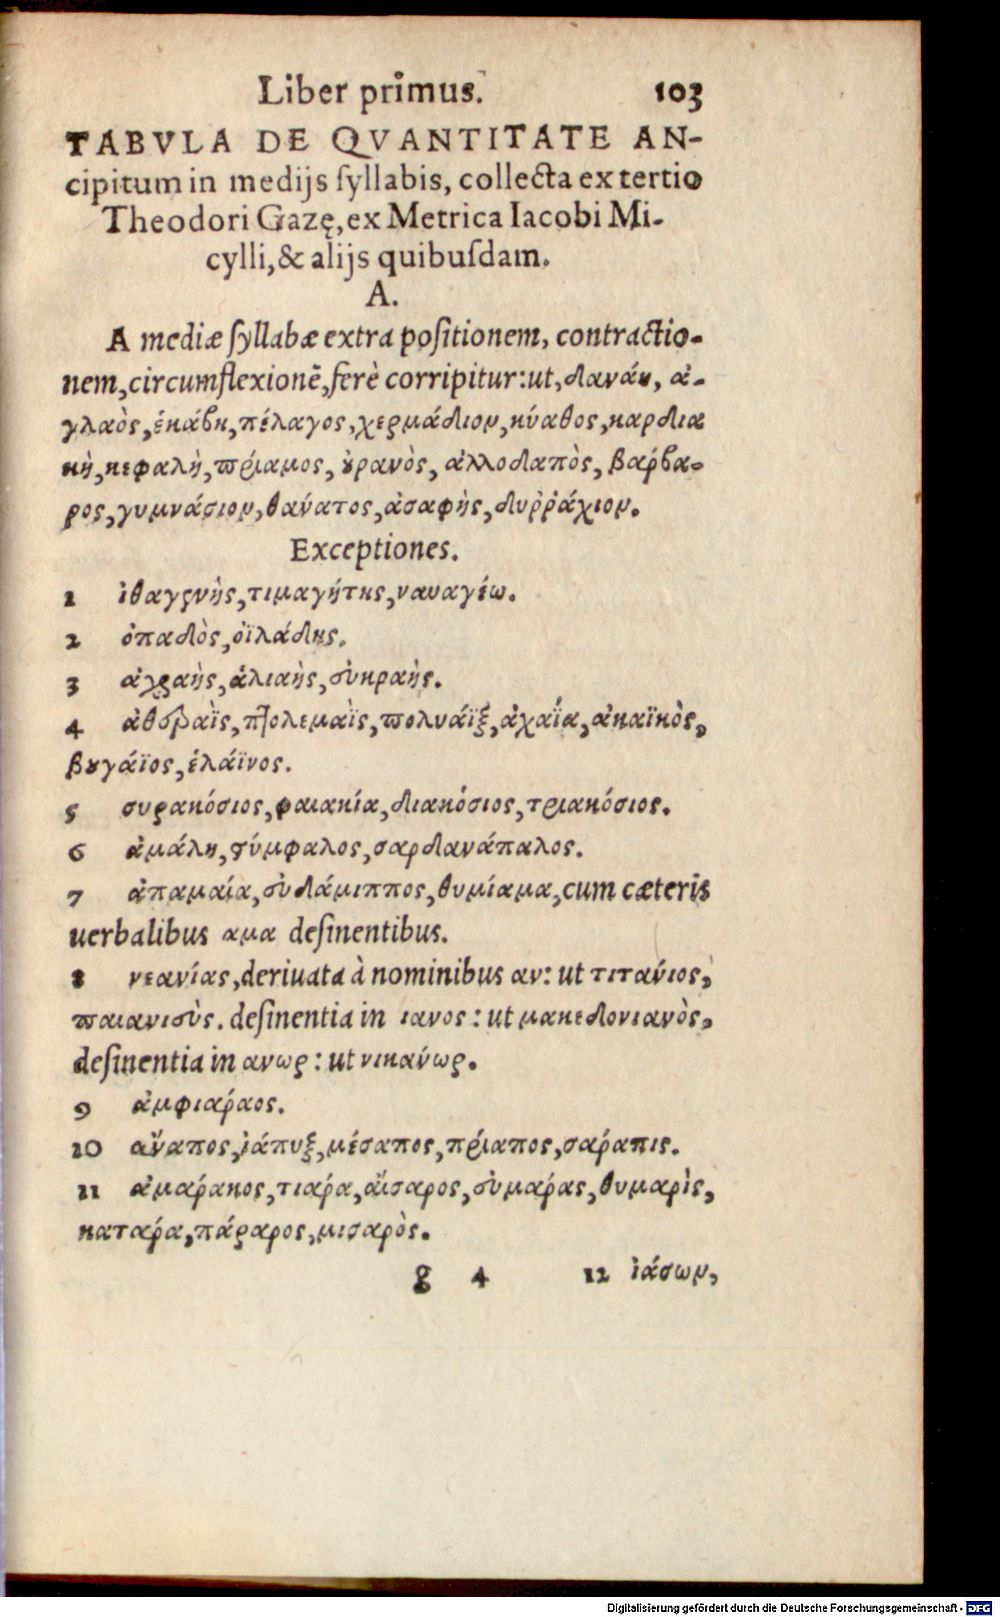 Liber primus. 103
TABVLA DE QVANTITATE AN-
cipitum in medijs ſyllabis, collecta ex tertio
Theodori Gazę, ex Metrica Iacobi Mi-
cylli, & alijs quibuſdam.
A.
A mediæ ſyllabæ extra poſitionem, contractio-
nem, circumflexionē, ferè corripitur: ut, δανάη, ἀ-
γλαὸς, ἑκάβη, πέλαγος, χερμάδιον, κύαθος, καρδια
κὴ, κεφαλὴ, πρίαμος, ȣ̓ρανὸς, ἀλλοδαπὸς, βάρβα-
ρος, γυμνάσιον, θάνατος, ἀσαφὴς, δυῤῥάχιον.
Exceptiones.
1 ἰθαγενὴς, τιμαγήτης, ναυαγέω.
2 ὀπαδὸς, ὀϊλάδης.
3 ἀχραὴς, ἁλιαὴς, δυκραὴς.
4 πτολεμαῒς, πολυάϊξ, ἀχαΐα, ἀκαϊκὸς,
βȣγάϊος, ἐλάϊνος.
5 συρακόσιος, φαιακία, διακόσιος, τριακόσιος.
6 ἀμάλη, τύμφαλος, σαρδανάπαλος.
7 ἀπαμαία, θυμίαμα, cum cæteris
uerbalibus αμα deſinentibus.
8 νεανίας, deriuata à nominibus αν: ut τιτάνιος,
παιανιστὺς. deſinentia in ιανος: ut μακεδονιανὸς,
deſinentia in ανωρ: ut νικάνωρ.
9 ἀμφιάραος.
10 ἄναπος, ἰάπυξ, μέσαπος, πρίαπος, σάραπις.
11 ἀμάρακος, τιάρα, αἴσαρος, θυμαρὶς,
κατάρα, πάραρος, μισαρὸς.
g 4 12 ἰάσων,
Digitalisierung gefördert durch die Deutsche Forschungsgemeinschaft - DFG